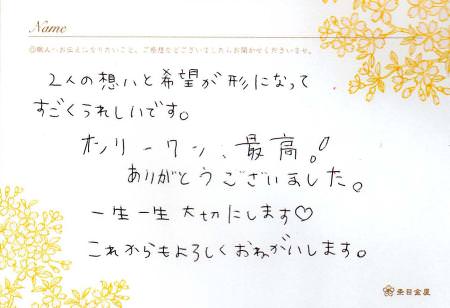 Name
◎職人へお伝えになりたいこと、ご感想などございましたらお聞かせくださいませ。
2人の想いと希望が形になって
すごくうれしいです。
オンリーワン、最高!!
ありがとうございました。
一生一生大切にします♡
これからもよろしくおねがいします。
杢目金屋